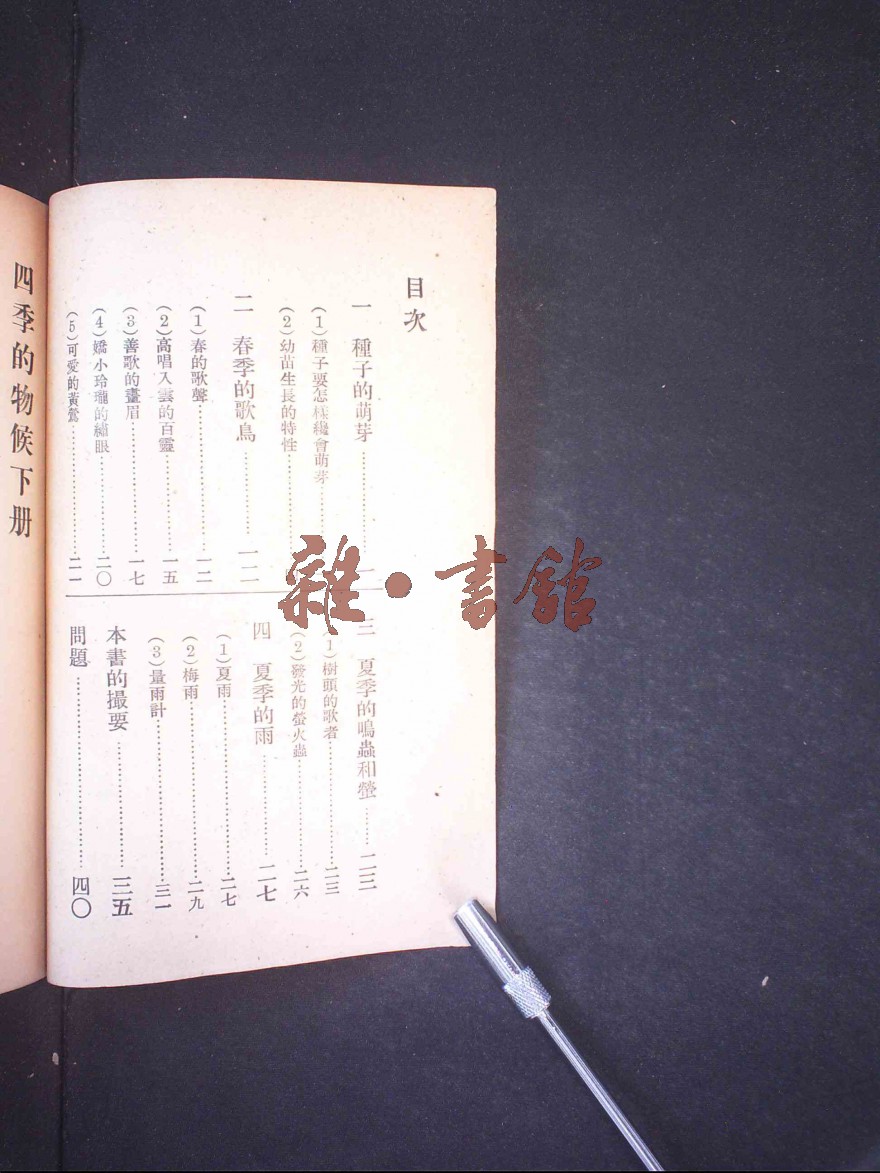 目次
一 種子的萌芽……一
(1)種子要怎樣纔會萌芽……
(2)幼苗生長的特性……
二 春季的歌鳥……一二
(1)春的歌聲……一二
(2)高唱入雲的百靈……一五
(3)善歌的畫眉……一七
(4)嬌小玲瓏的繡眼……二〇
(5)可愛的黃鶯……二一
三 夏季的鳴蟲和螢……二三
(1)樹頭的歌者……二三
(2)發光的螢火蟲……二六
四 夏季的雨……二七
(1)夏雨……二七
(2)梅雨……二九
(3)量雨計……三一
本書的撮要……三五
問題……四〇
四季的物候下册
雜·書館